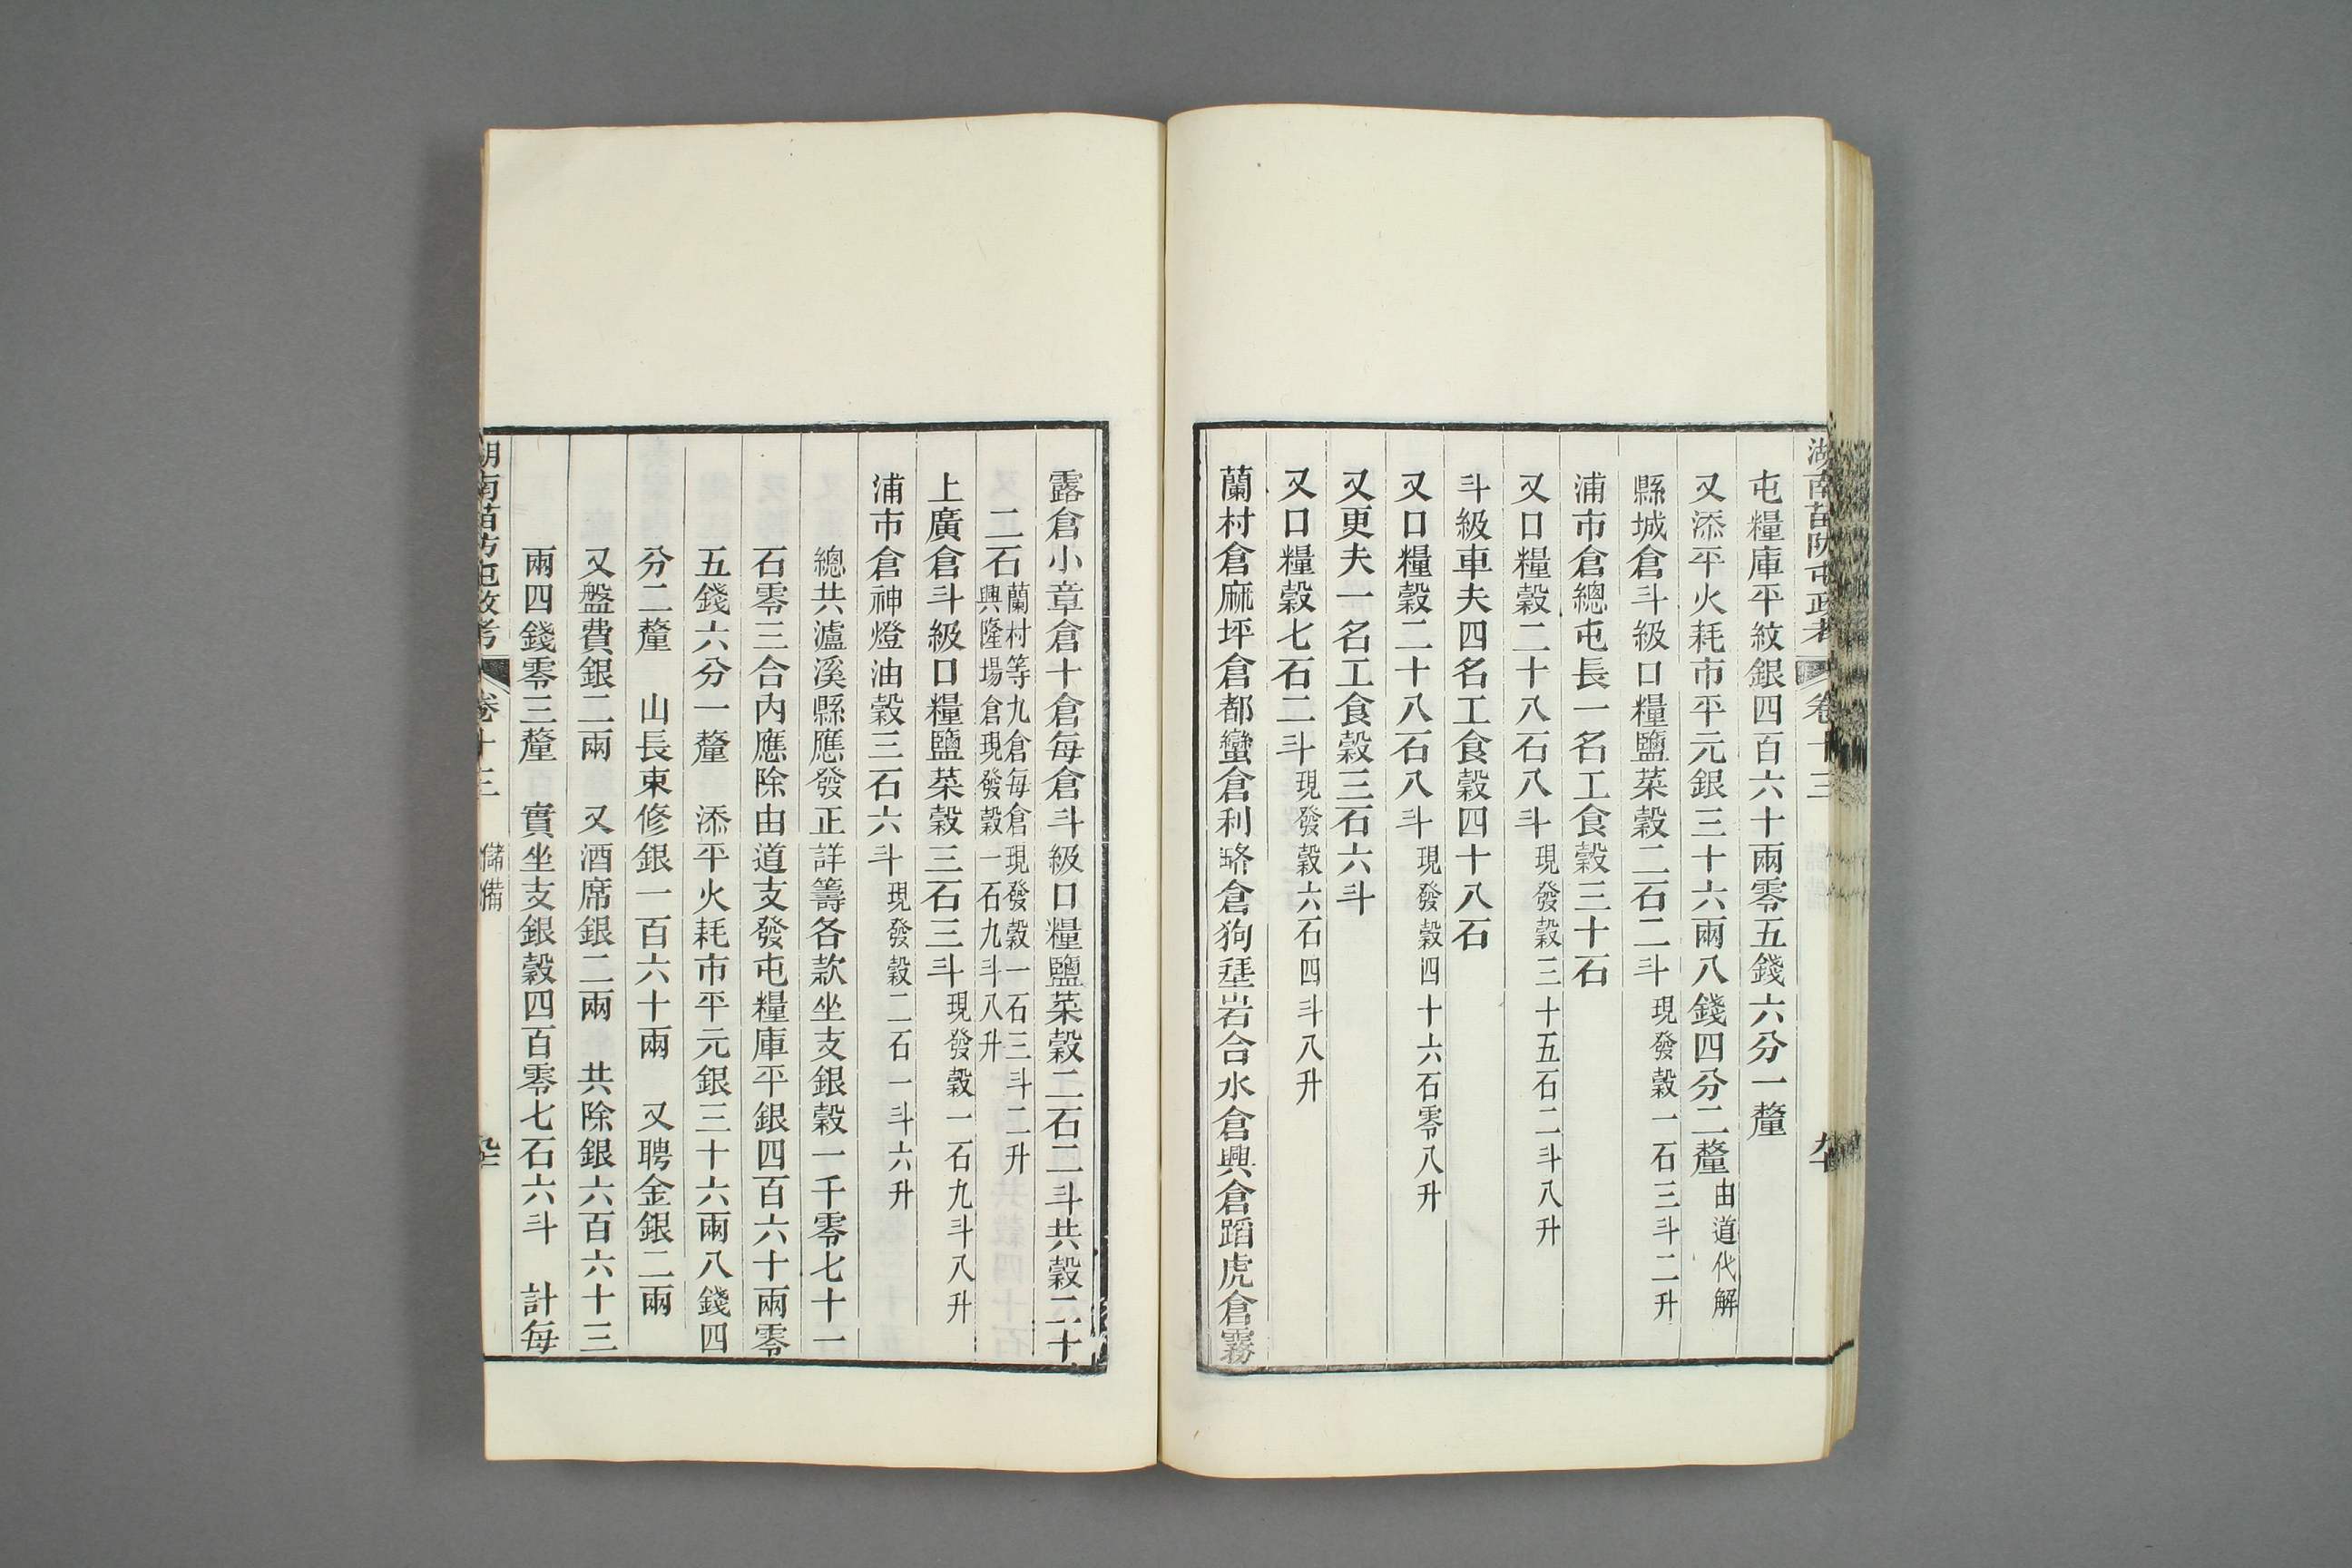 湖南苗防屯政考 卷十三
屯糧庫平紋銀四百六十兩零五錢六分一釐
又添平火耗市平元銀三十六兩八錢四分二釐由道代解
縣城倉斗級口糧鹽菜穀二石二斗現發穀一石三斗二升
浦市倉總屯長一名工食穀三十石
又口糧穀二十八石八斗現發穀三十五石二斗八升
斗級車夫四名工食穀四十八石
又口糧穀二十八石八斗現發穀四十六石零八升
又更夫一名工食穀三石六斗
又口糧穀七石二斗現發穀六石四斗八升
蘭村倉麻坪倉都蠻倉利略倉狗琵岩合水倉興倉蹈虎倉霧
露倉小章倉十倉每倉斗級口糧鹽菜穀二石二斗共穀二十
二石蘭村等九倉每倉現發穀一石三斗二升
興隆場倉現發穀一石九斗八升
上廣倉斗級口糧鹽菜穀三石三斗現發穀一石九斗八升
浦市倉神燈油穀三石六斗現發穀二石一斗六升
總共瀘溪縣應發正詳籌各款坐支銀穀一千零七十一
石零三合內應除由道支發屯糧庫平銀四百六十兩零
五錢六分一釐 添平火耗市平元銀三十六兩八錢四
分二釐 山長束修銀一百六十兩 又聘金銀二兩
又盤費銀二兩 又酒席銀二兩 共除銀六百六十三
兩四錢零三釐 實坐支銀穀四百零七石六斗 計每
湖南苗防屯政考 卷十三 儲備